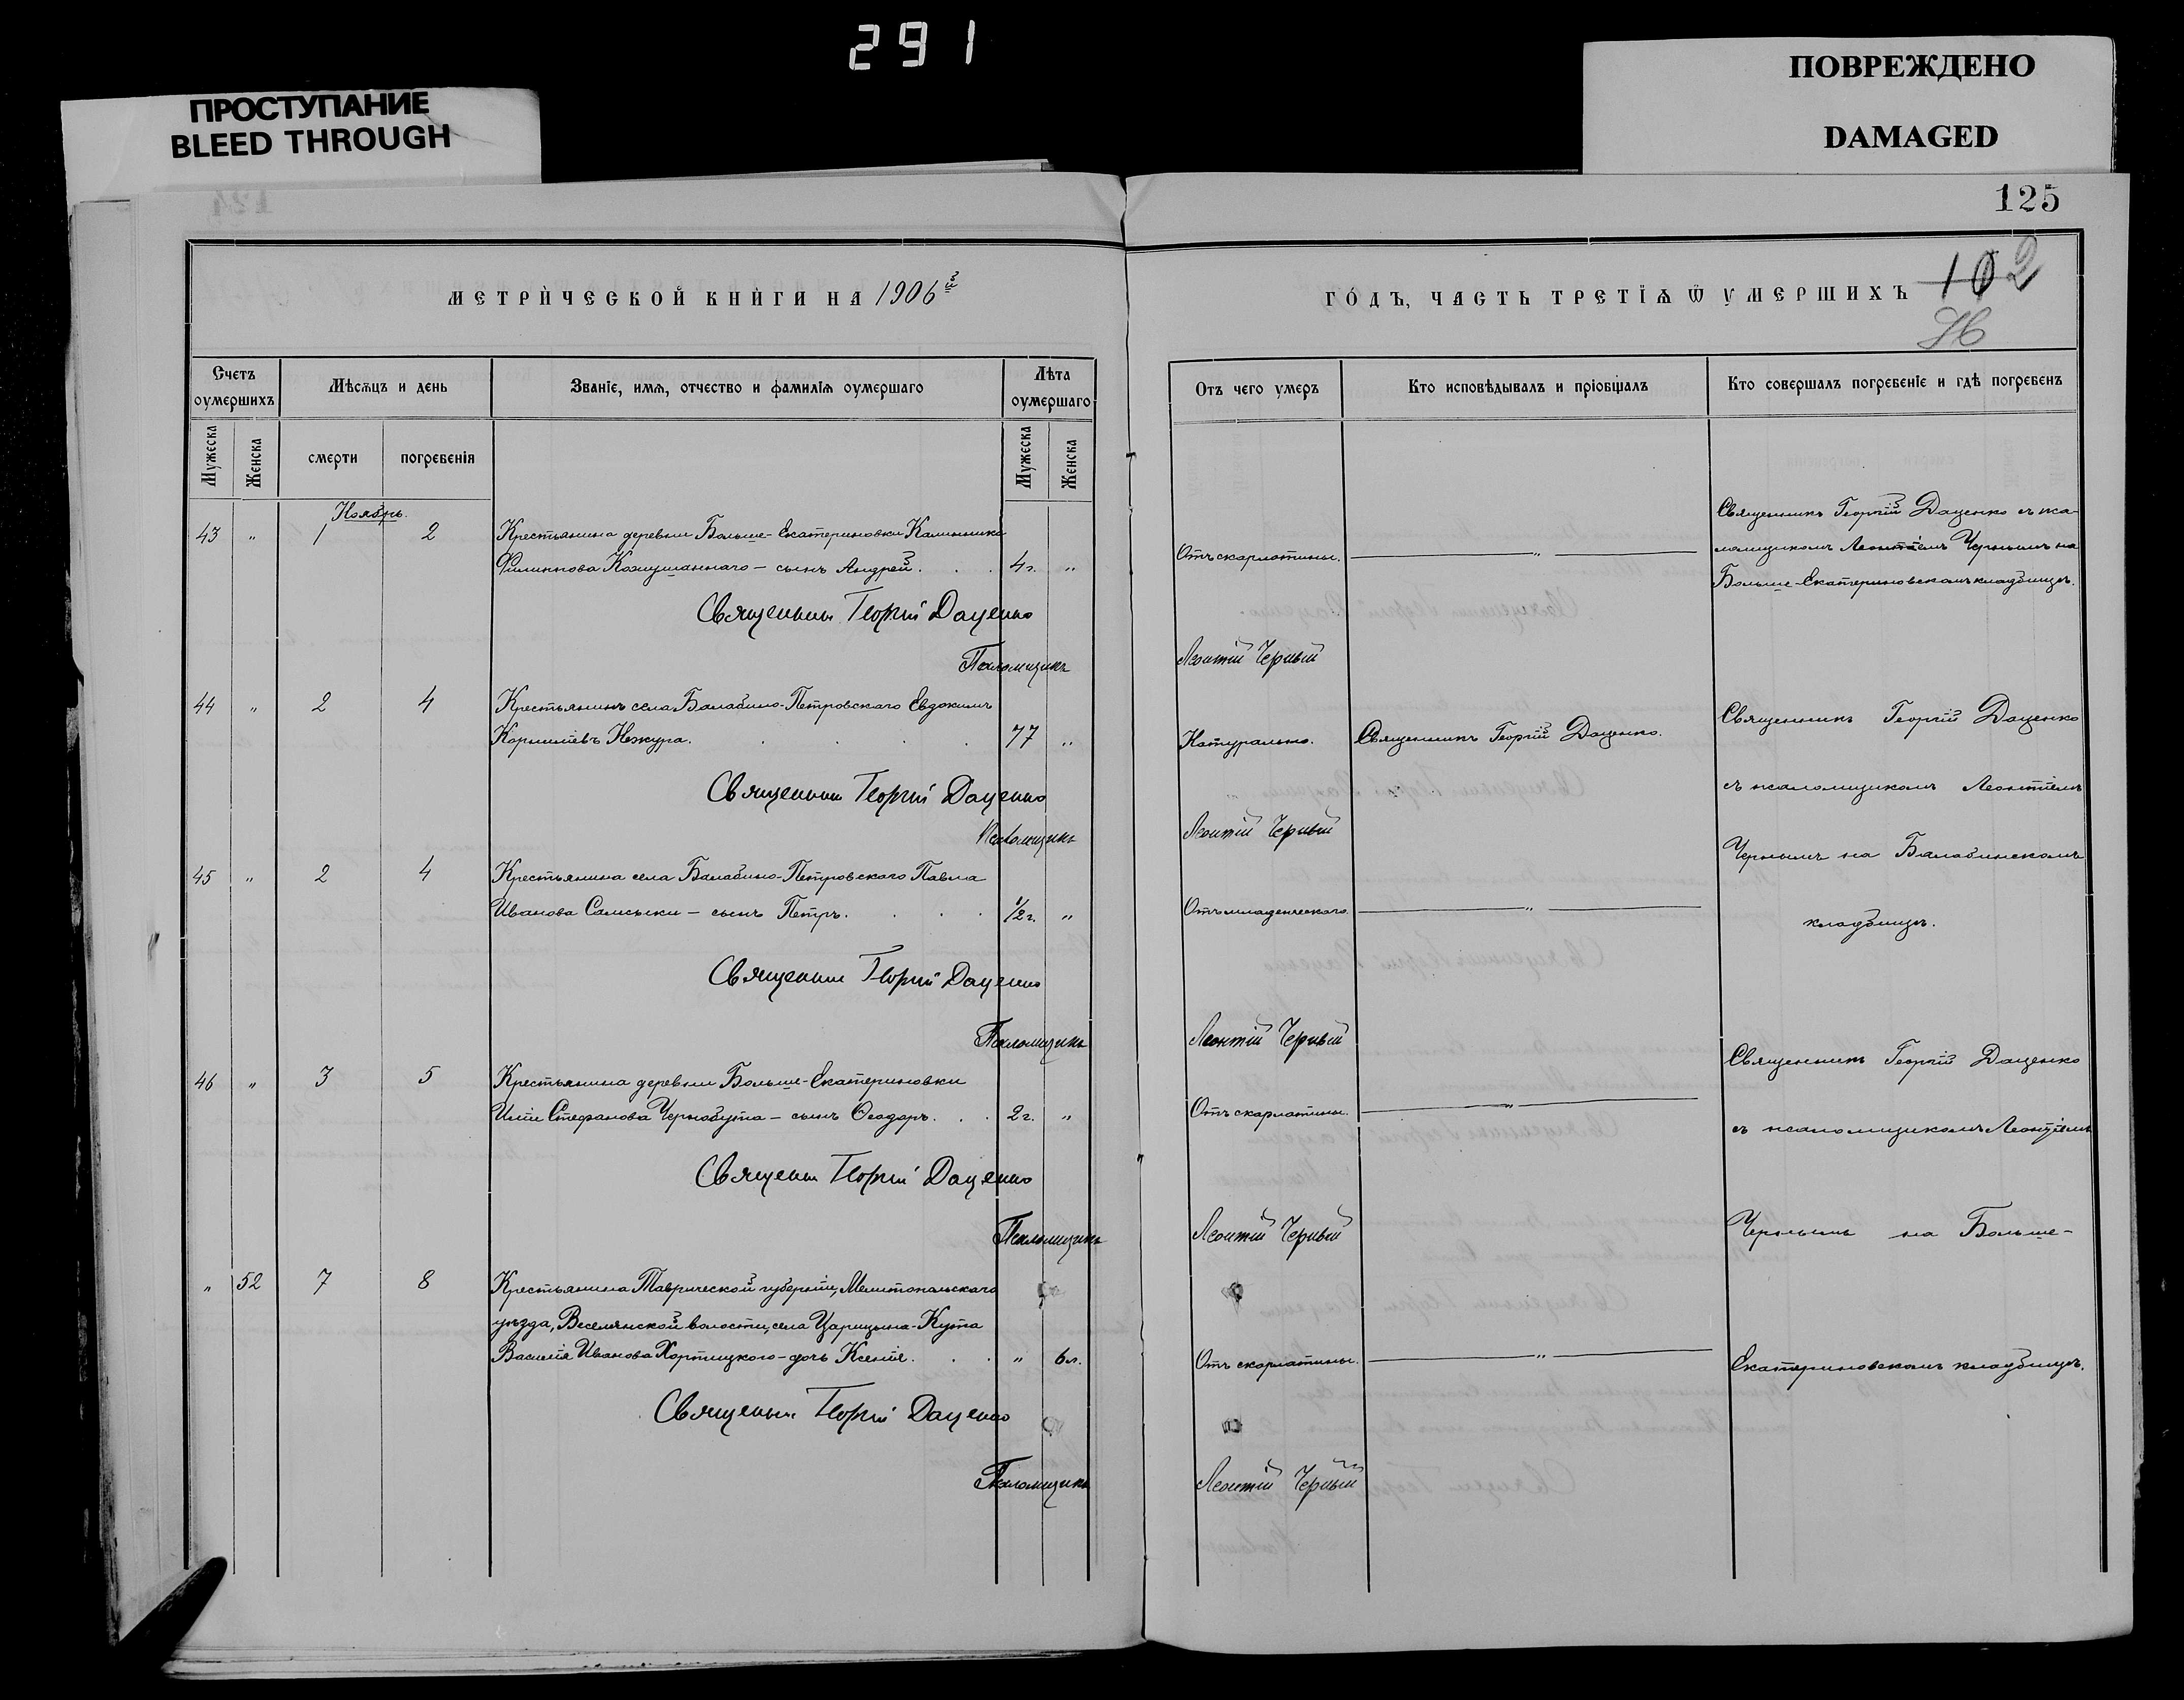 291
ПРОСТУПАНИЕ
BLEED THROUGH
ПОВРЕЖДЕНО
DAMAGED
125
МЕТРИЧЕСКОЙ КНИГИ НА 1906й
Счетъ оумершихъ
Мѣсяцъ и день
Званіе, имя, отчество и фамилія оумершаго
Лѣта оумершаго
Мужеска
Женска
смерти
погребенія
Мужеска
Женска
Ноябрь.
43 " 1 2 Крестьянина деревни Больше-Екатериновки Калинника
Филиппова Кожушаннаго – сынъ Андрей. 4 г. "
Священникъ Георгій Даценко
Псаломщикъ
44 " 2 4 Крестьянинъ села Балабино-Петровскаго Евдокимъ
Корниліевъ Нежура. 77 "
Священникъ Георгій Даценко
Псаломщикъ
45 " 2 4 Крестьянина села Балабино-Петровскаго Павла
Иванова Самсыки – сынъ Петръ. 1/2 г. "
Священникъ Георгій Даценко
Псаломщикъ
46 " 3 5 Крестьянина деревни Больше-Екатериновки
Иліи Стефанова Чернобута – сынъ Ѳеодоръ. 2 г. "
Священникъ Георгій Даценко
Псаломщикъ
" 52 7 8 Крестьянина Таврической губерніи, Мелитопольскаго
уѣзда, Веселянской волости, села Царицына-Кута
Василія Иванова Хортицкого – дочь Ксенія. " 6 л.
Священникъ Георгій Даценко
Псаломщикъ
ГОДЪ, ЧАСТЬ ТРЕТІѦ Ѿ УМЕРШИХЪ
102
Отъ чего умеръ
Кто исповѣдывалъ и пріобщалъ
Кто совершалъ погребеніе и гдѣ погребенъ
Священникъ Георгій Даценко съ пса-
Отъ скарлатины. — " — ломщикомъ Леонтіемъ Чернымъ на
Больше-Екатериновскомъ кладбищѣ.
Леонтій Черный
Священникъ Георгій Даценко
Натурально. Священникъ Георгій Даценко.
съ псаломщикомъ Леонтіемъ
Леонтій Черный
Чернымъ на Балабинскомъ
Отъ младенческаго. — " —
кладбищѣ.
Леонтій Черный
Священникъ Георгій Даценко
Отъ скарлатины. — " —
съ псаломщикомъ Леонтіемъ
Леонтій Черный
Чернымъ на Больше-
Отъ скарлатины. — " — Екатериновскомъ кладбищѣ.
Леонтій Черный